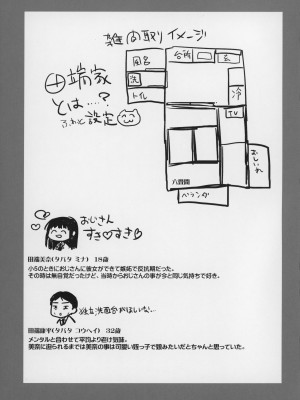 雑間取りイメージ
田端家
とは…?
ふわっと設定
風呂
洗
トイレ
台所
玄
冷
TV
おしいれ
六畳間
ベランダ
おじさん
すき♡すき♡
田端美奈(タバタ ミナ) 18歳
小5のときにおじさんに彼女ができて嫉妬で反抗期だった。
その時は無自覚だったけど、当時からおじさんの事が今と同じ気持ちで好き。
独立洗面台がほしいな…
(タバタ コウヘイ) 32歳
メンタルと合わせて平均より老け気味。
美奈に迫られるまでは美奈の事は可愛い姪っ子で頼みたいだとちゃんと思っていた。